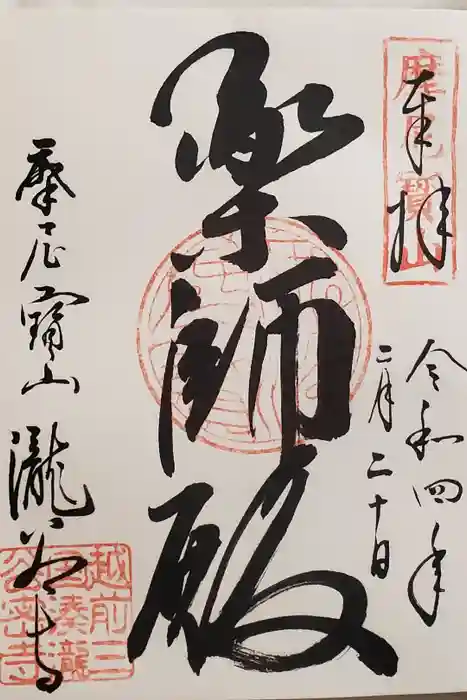 奉拝
摩尼寶山
令和四年
二月二十日
薬師殿
摩尼寳山 瀧谷寺
越前三
国湊瀧
谷密寺